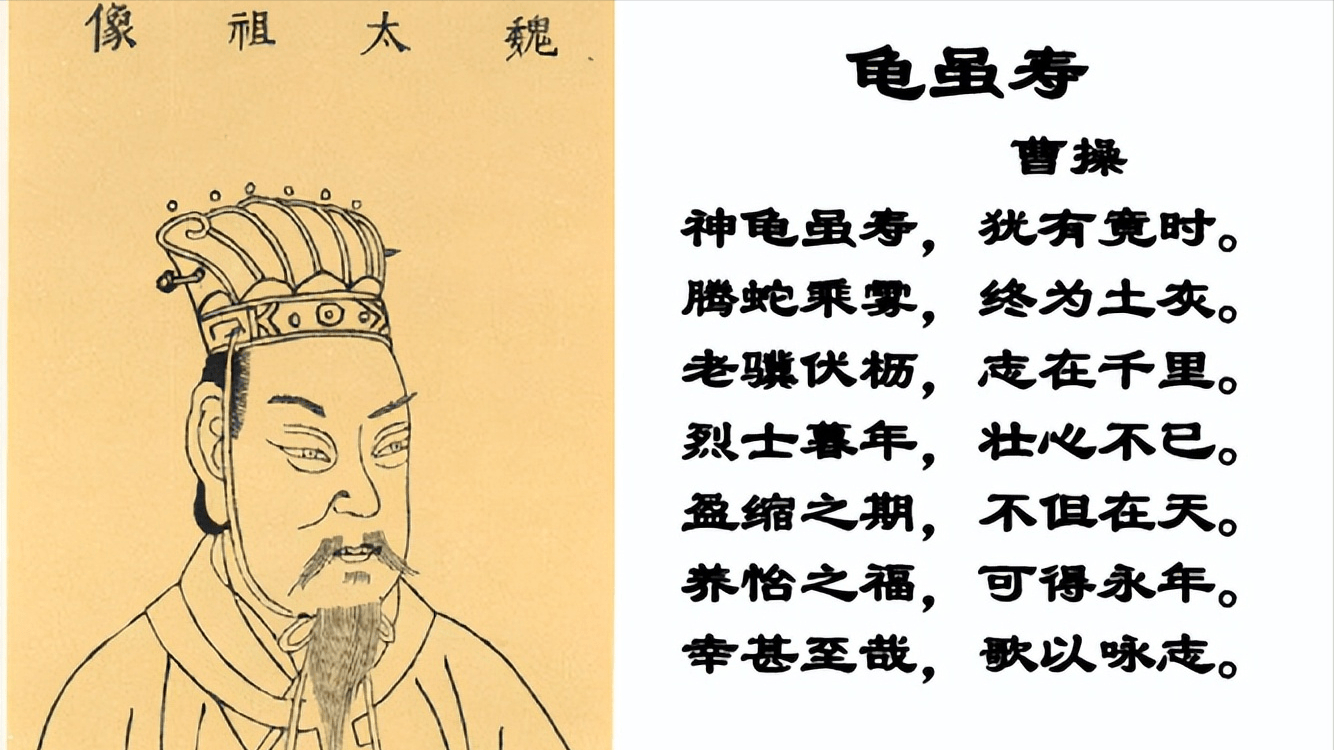 魏太祖像
龟虽寿
曹操
神龟虽寿，犹有竟时。
腾蛇乘雾，终为土灰。
老骥伏枥，志在千里。
烈士暮年，壮心不已。
盈缩之期，不但在天。
养怡之福，可得永年。
幸甚至哉，歌以咏志。